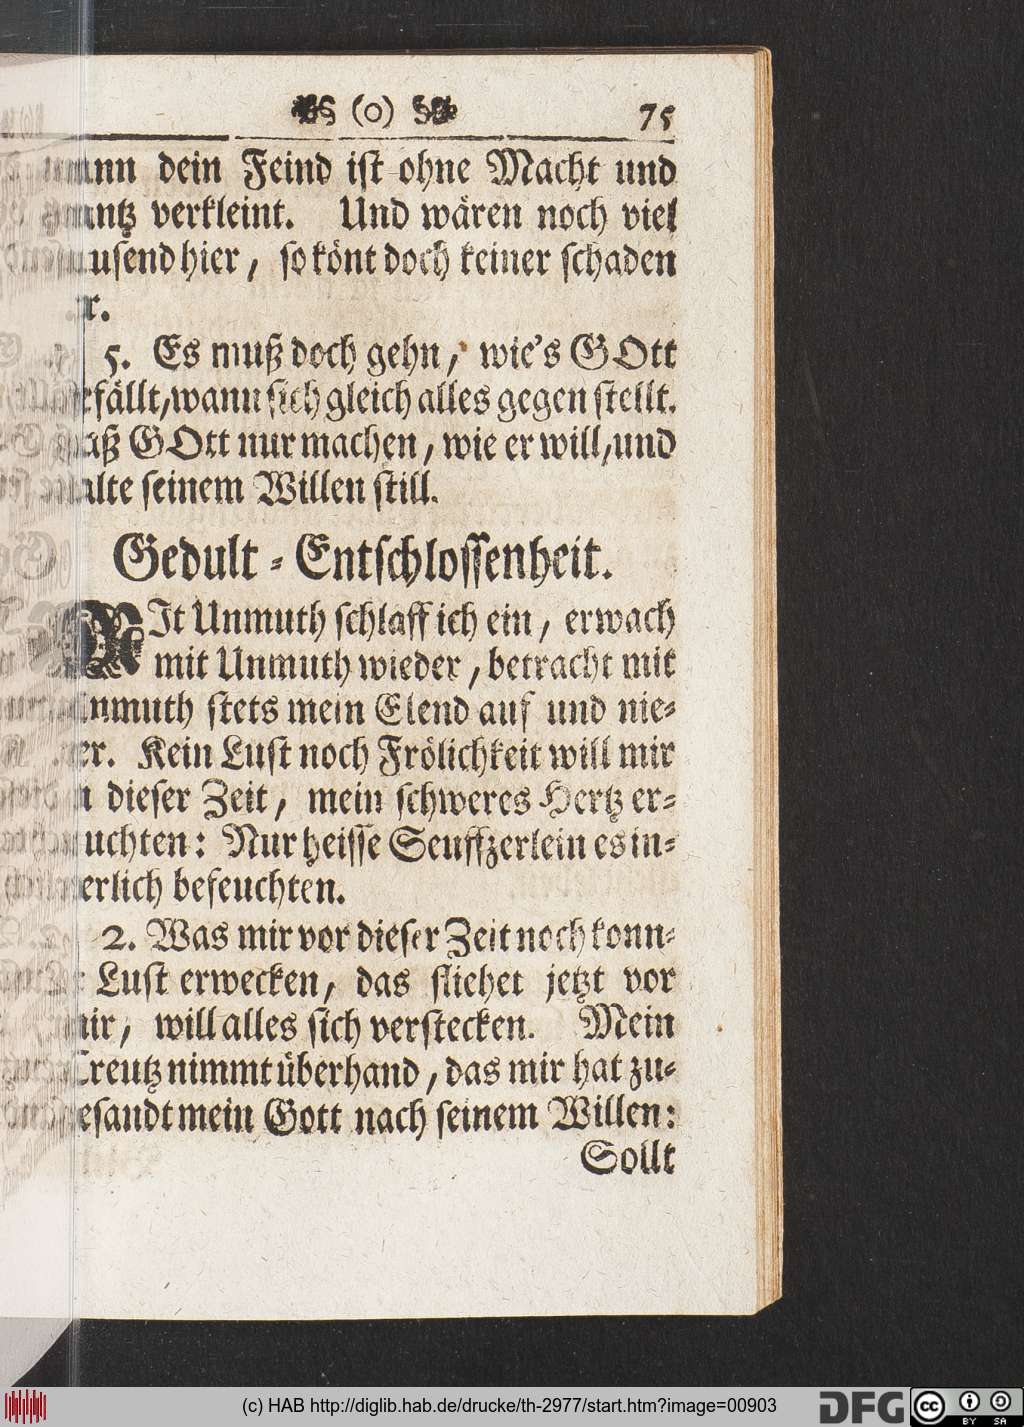 (o) 75
dein Feind ist ohne Macht und
verkleint. Und wären noch viel
hier, so könt doch keiner schaden
5. Es muß doch gehn, wie's GOtt
gefällt, wann sich gleich alles gegen stellt.
Laß GOtt nur machen, wie er will, und
halte seinem Willen still.
Gedult-Entschlossenheit.
MIt Unmuth schlaff ich ein, erwach
mit Unmuth wieder, betracht mit
Unmuth stets mein Elend auf und nie-
der. Kein Lust noch Frölichkeit will mir
in dieser Zeit, mein schweres Hertz er-
leuchten: Nur heisse Seuffzerlein es in-
nerlich befeuchten.
2. Was mir vor dieser Zeit noch konn-
te Lust erwecken, das fliehet jetzt vor
mir, will alles sich verstecken. Mein
Creutz nimmt überhand, das mir hat zu-
gesandt mein Gott nach seinem Willen:
Sollt
(c) HAB http://diglib.hab.de/drucke/th-2977/start.htm?image=00903
DFG cc BY SA